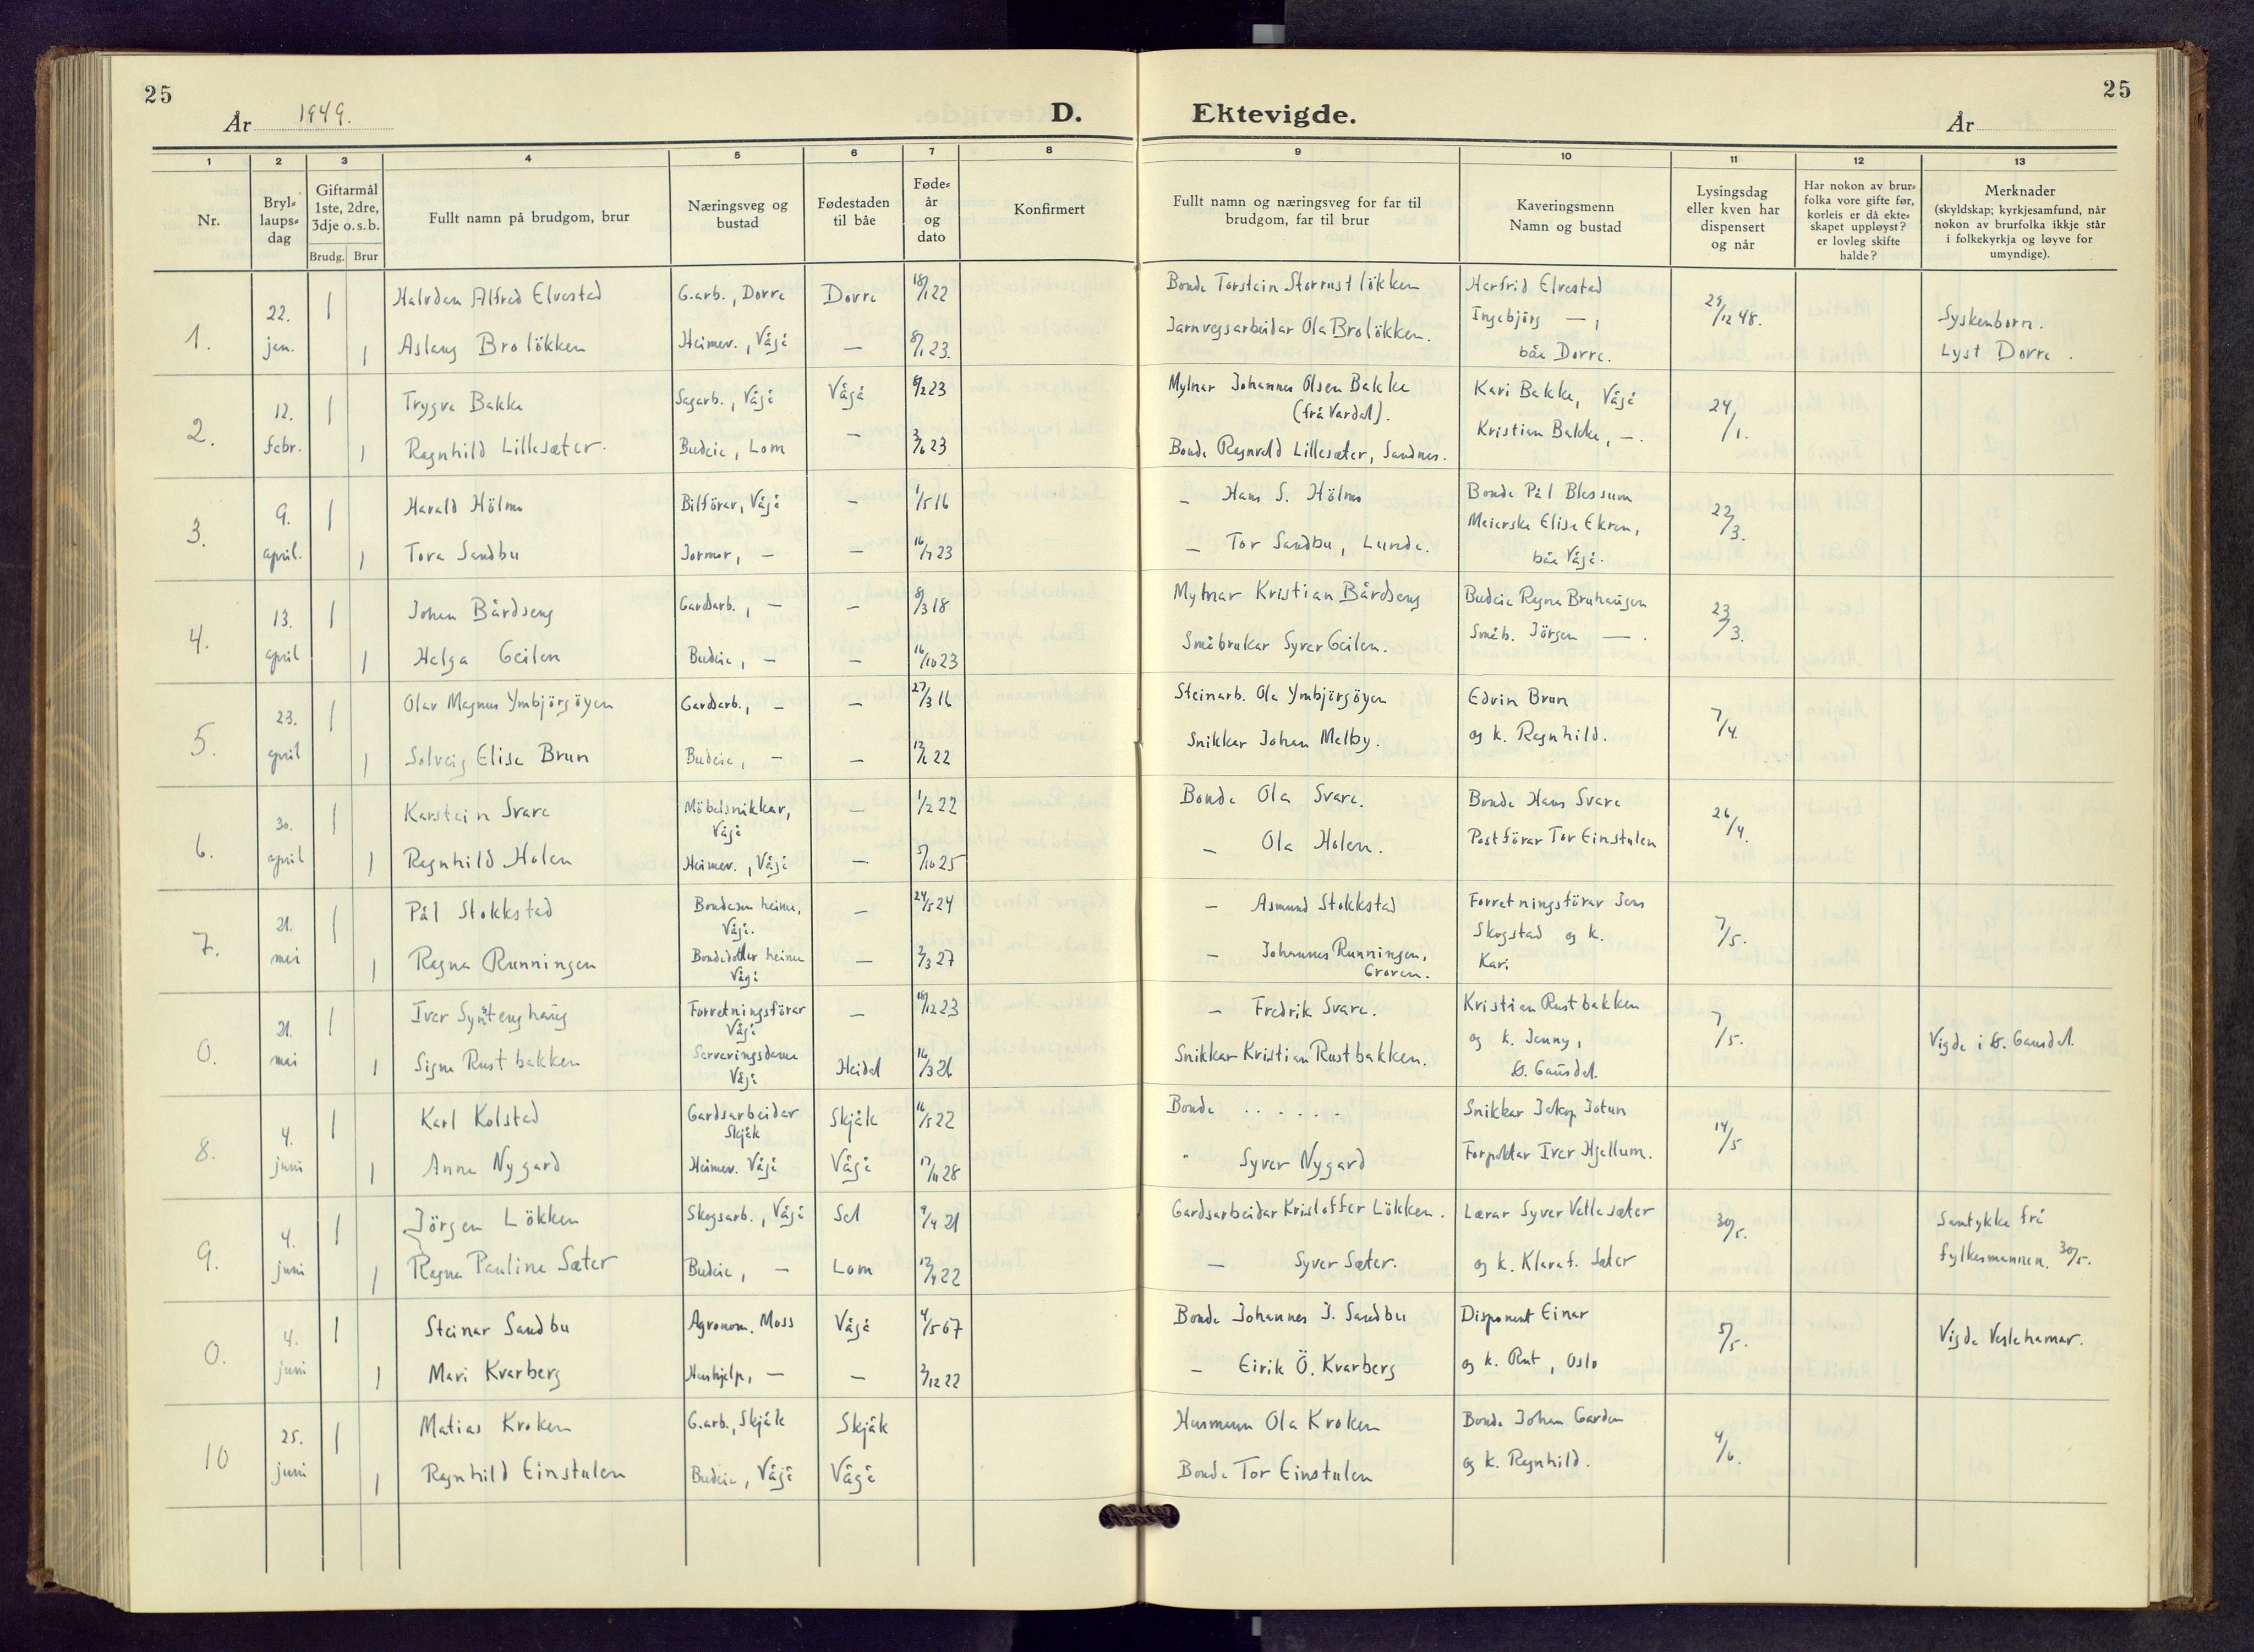 25
År 1949.
D. Ektevigde.
År
25
1 2 3 4 5 6 7 8 9 10 11 12 13
Nr.
Bryl-
laups-
dag
Giftarmål
1ste, 2dre,
3dje o.s.b.
Brudg. Brur
Fullt namn på brudgom, brur
Næringsveg og
bustad
Fødestaden
til båe
Føde-
år
og
dato
Konfirmert
Fullt namn og næringsveg for far til
brudgom, far til brur
Kaveringsmenn
Namn og bustad
Lysingsdag
eller kven har
dispensert
og når
Har nokon av brur-
folka vore gifte før,
korleis er då ekte-
skapet uppløyst?
er lovleg skifte
halde?
Merknader
(skyldskap; kyrkjesamfund, når
nokon av brurfolka ikkje står
i folkekyrkja og løyve for
umyndige).
1. 22. jan.
1 Halvdan Alfred Elvestad G.arb., Dovre Dovre 18/1 22 Bonde Torstein Storrustlökken
1 Aslaug Brolökken Heimev., Vågå — 8/1 23. Jarnvegsarbeidar Ola Brolökken.
Herfrid Elvestad
Ingebjörg — ,
båe Dovre.
29/12 48.
Syskenborn.
Lyst Dovre.
2. 12. febr.
1 Trygve Bakke Sagarb., Vågå Vågå 8/2 23 Mylnar Johannes Olsen Bakke
(frå Vardal).
1 Ragnhild Lillesæter. Budeie, Lom — 3/6 23 Bonde Ragnvald Lillesæter, Sandnes.
Kari Bakke, Vågå
Kristian Bakke, —.
24/1.
3. 9. april.
1 Harald Hölmo Bilförar, Vågå — 1/5 16 — Hans S. Hölmo
1 Tora Sandbu Jormor, — — 16/7 23 — Tor Sandbu, Lunde.
Bonde Pål Blessum
Meierske Elise Ekren,
båe Vågå.
22/3.
4. 13. april
1 Johan Bårdseng Gardsarb., — — 8/3 18 Mylnar Kristian Bårdseng
1 Helga Geilen Budeie, — — 16/10 23 Småbrukar Syver Geilen.
Budeie Ragna Bruhaugen
Småb. Jörgen —.
23/3.
5. 23. april
1 Olav Magnus Ymbjörgöyen Gardsarb., — — 27/3 16 Steinarb. Ola Ymbjörgöyen
1 Solveig Elise Brun Budeie, — — 22 Snikkar Johan Melby.
Edvin Brun
og k. Ragnhild.
7/4.
6. 30. april
1 Karstein Svare Möbelsnikkar,
Vågå — 1/2 22 Bonde Ola Svare.
1 Ragnhild Holen Heimev., Vågå — 5/10 25 — Ola Holen.
Bonde Hans Svare
Postförar Tor Einstulen
26/4.
7. 21. mai
1 Pål Stokkstad Bondeson heime,
Vågå. — 24/5 24 — Asmund Stokkstad
1 Ragna Runningen Bondedotter heime
Vågå — 2/3 27 — Johannes Runningen,
Groven.
Forretningsförar Jens
Skogstad og k.
Kari
7/5.
0. 21. mai
1 Iver Synstenghaug Forretningsförar
Vågå — 18/12 23 — Fredrik Svare.
1 Signe Rustbakken Serveringsdame
Vågå Heidal 16/3 26 Snikkar Kristian Rustbakken.
Kristian Rustbakken
og k. Jenny,
Ö. Gausdal.
7/5.
Vigde i Ö. Gausdal.
8. 4. juni
1 Karl Kolstad Gardsarbeidar
Skjåk Skjåk 16/5 22 Bonde . . . . . .
1 Anne Nygard Heimev. Vågå Vågå 17/11 28 " Syver Nygard
Snikkar Jakop Jotun
Forpaktar Iver Hjellum.
14/5
9. 4. juni
1 Jörgen Lökken Skogsarb., Vågå Sel 9/4 21 Gardsarbeidar Kristoffer Lökken.
1 Ragna Pauline Sæter Budeie, — Lom 12/4 22 — Syver Sæter.
Lærar Syver Vetlesæter
og k. Klara f. Sæter
30/5.
Samtykke frå
fylkesmannen. 30/5.
0. 4. juni
1 Steinar Sandbu Agronom. Moss Vågå 4/5 67 Bonde Johannes J. Sandbu
1 Mari Kvarberg Hushjelp, — — 2/12 22 — Eirik Ö. Kvarberg
Disponent Einar
og k. Rut, Oslo
5/5.
Vigde Veslehamar.
10 25. juni
1 Matias Kroken G.arb., Skjåk Skjåk Husmann Ola Kroken
1 Ragnhild Einstulen Budeie, Vågå Vågå Bonde Tor Einstulen
Bonde Johan Garden
og k. Ragnhild.
4/6.